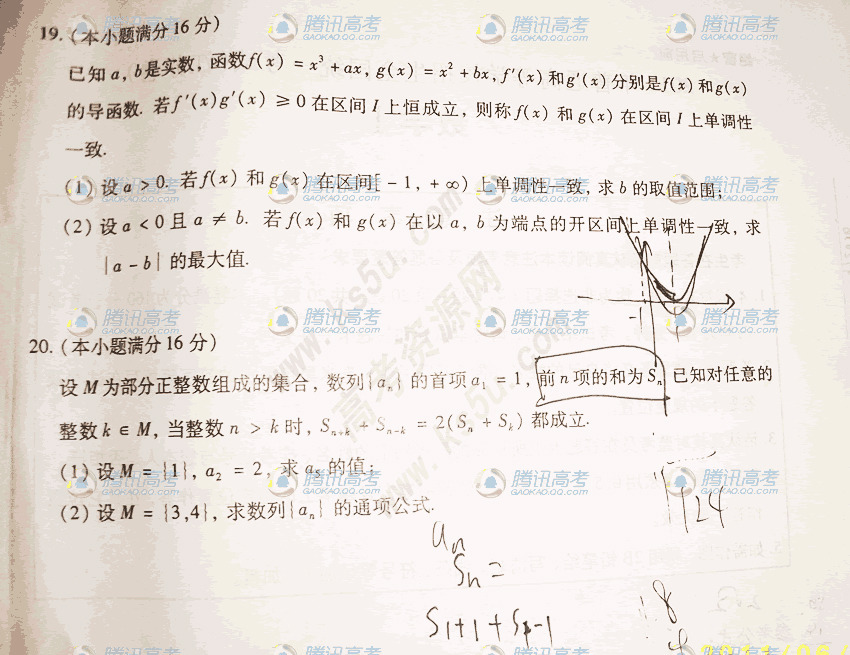 19. (本小题满分16分)
已知a, b是实数, 函数f(x) = x³ + ax, g(x) = x² + bx, f′(x)和g′(x)分别是f(x)和g(x)
的导函数. 若f′(x)g′(x) ≥ 0在区间I上恒成立, 则称f(x)和g(x)在区间I上单调性
一致.
(1) 设a > 0. 若f(x)和g(x)在区间[-1, +∞)上单调性一致, 求b的取值范围;
(2) 设a < 0且a ≠ b. 若f(x)和g(x)在以a, b为端点的开区间上单调性一致, 求
|a - b|的最大值.
20. (本小题满分16分)
设M为部分正整数组成的集合, 数列{aₙ}的首项a₁ = 1, 前n项的和为Sₙ, 已知对任意的
整数k ∈ M, 当整数n > k时, Sₙ₊ₖ + Sₙ₋ₖ = 2(Sₙ + Sₖ)都成立.
(1) 设M = {1}, a₂ = 2, 求a₅的值;
(2) 设M = {3,4}, 求数列{aₙ}的通项公式.
aₙ
Sₙ =
124
8
腾讯高考
GAOKAO.QQ.COM
高考资源网
www.ks5u.com